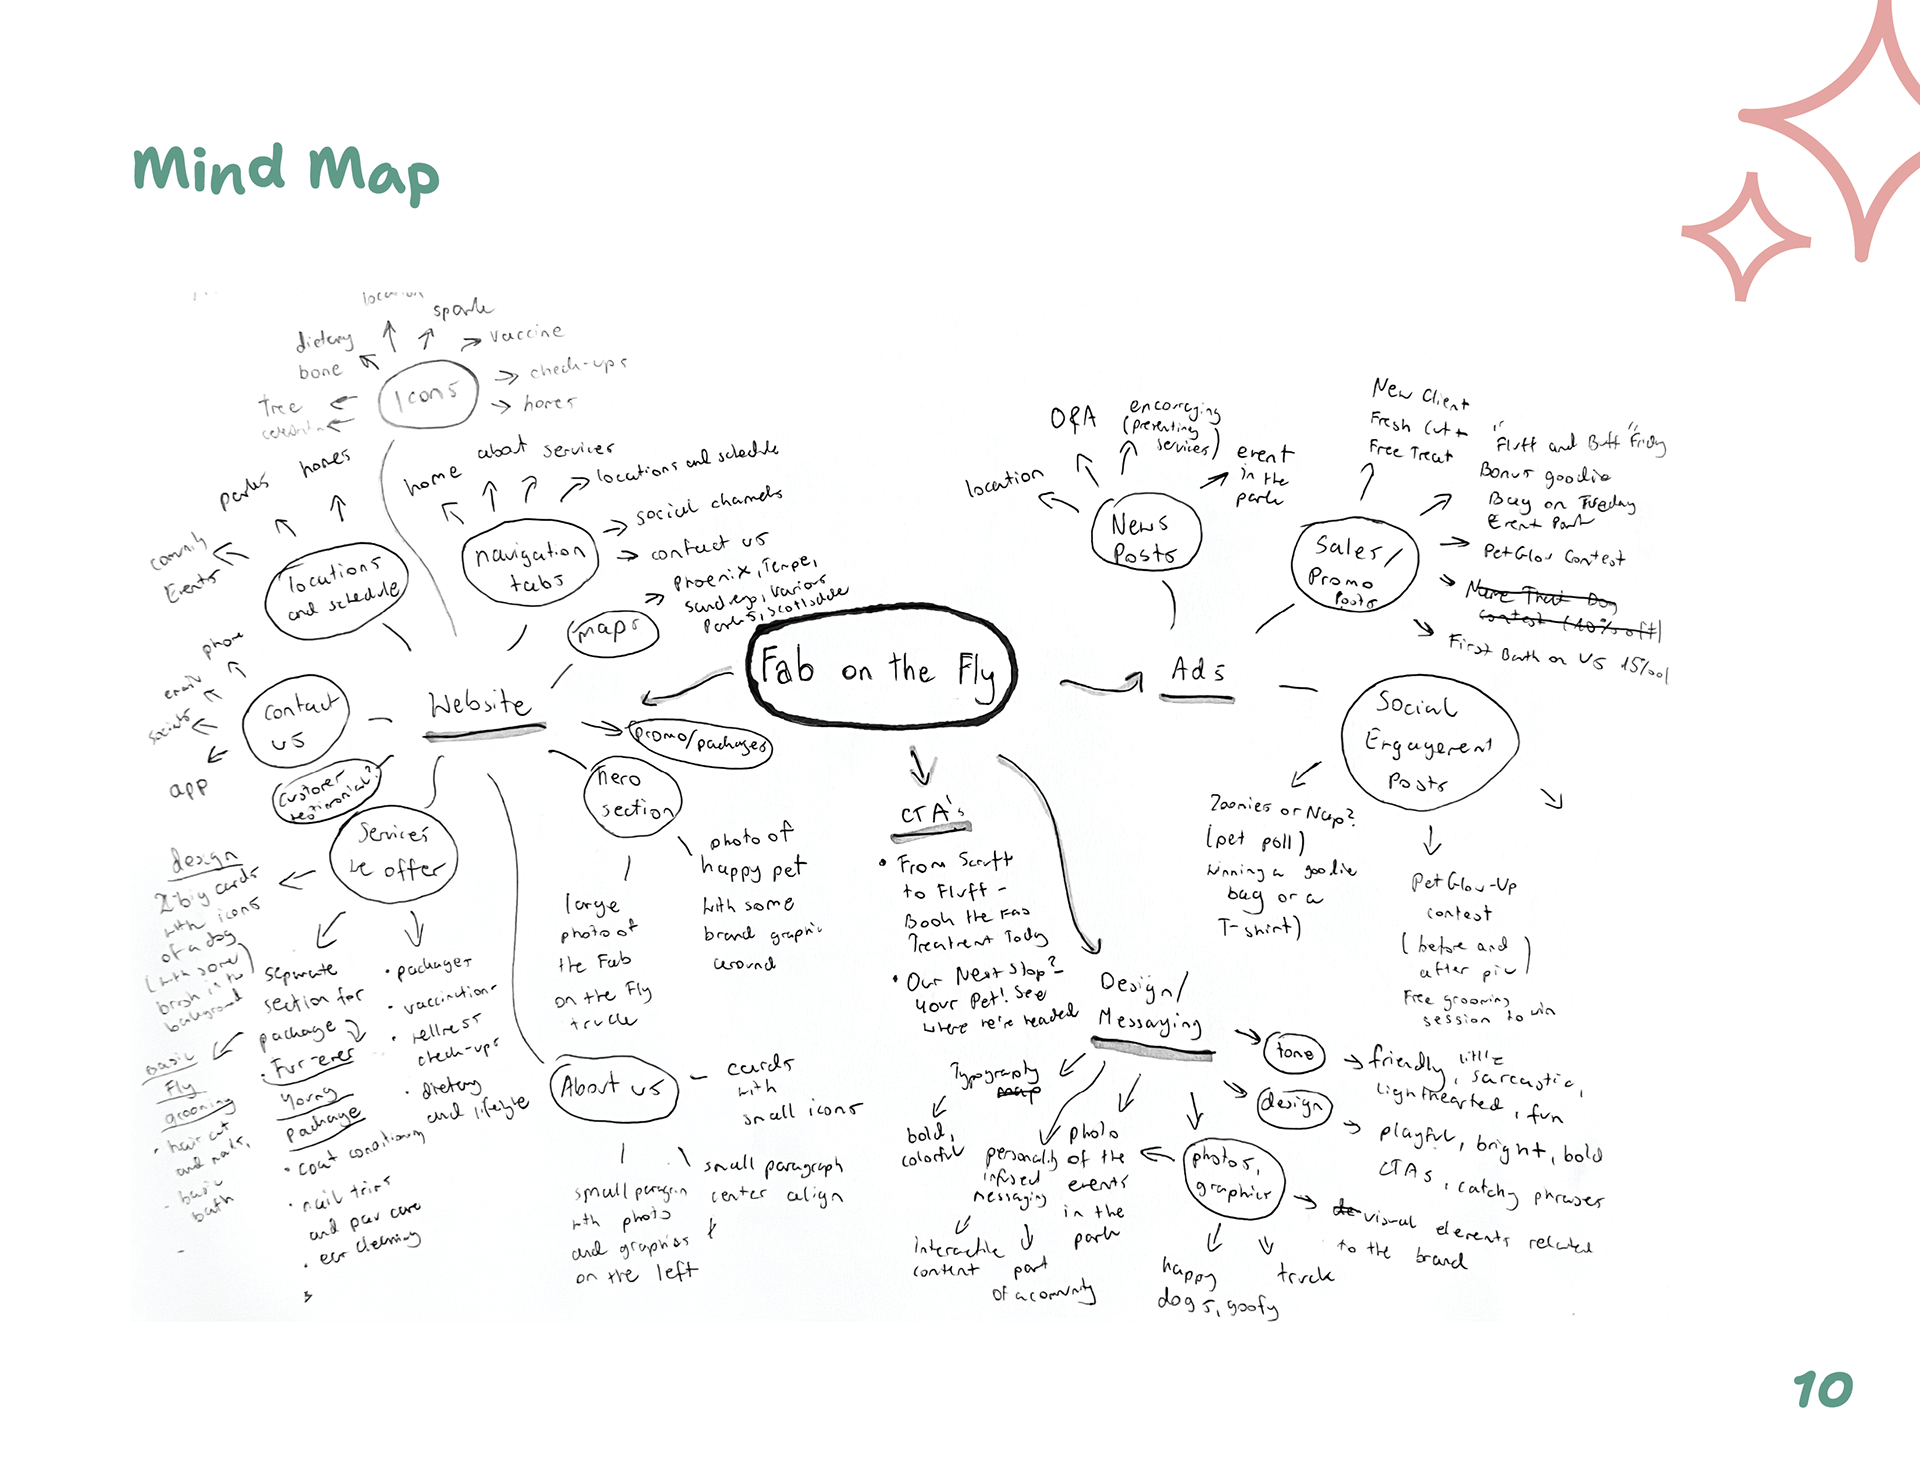 Mind Map
location
spark
dietary
vaccine
bone
check-ups
Icons
Tree
homes
homes
parks
Events
locations
and schedule
home
about
services
locations and schedule
social channels
contact us
navigation
tabs
maps
Phoenix, Tempe,
various
Parks, Scottsdale
Fab on the Fly
Website
contact
us
phone
email
socials
app
customer
testimonial?
promo/packages
hero
section
photo of
happy pet
with some
brand graphic
around
large
photo of
the Fab
on the Fly
truck
Services
we offer
design
2 big cards
with icons
of a dog
(with some
brush in the
background)
separate
section for
package
Fur-ever
Young
Package
• coat conditioning
• nail trims
and paw care
• ear cleaning
Basic
Fly
grooming
• hair cut
and nails,
- basic
bath
• packages
• vaccinations
• wellness
check-ups
• dietary
and lifestyle
About us
cards
with
small icons
small paragraph
center align
with photo
and graphics
on the left
CTA's
• From Scruff
to Fluff -
Book the Fab
Treatment Today
• Our Next Stop? -
Your Pet! See
where we're headed
Ads
News
Posts
location
Q&A
encouraging
(presenting
services)
event
in the
park
Sales/
Promo
Posts
New Client
Fresh Cut +
Free Treat
"Fluff and Buff" Friday
Bonus goodie
Bag on Tuesday
Event Park
PetGlow Contest
Name That Dog
contest (10% off)
First Bath on Us 15%
Social
Engagement
Posts
Zoomies or Nap?
(pet poll)
winning a goodie
bag or a
T-shirt)
PetGlow-Up
contest
(before and
after pic)
Free grooming
session to win
Design/
Messaging
tone
friendly, little
sarcastic,
lighthearted, fun
design
playful, bright, bold
CTAs, catchy phrases
Typography
map
bold,
colorful
personality
infused
messaging
interactive
content
part
of a community
photo
of the
events
in the
park
photos,
graphics
visual elements related
to the brand
happy
dogs, goofy
truck
10